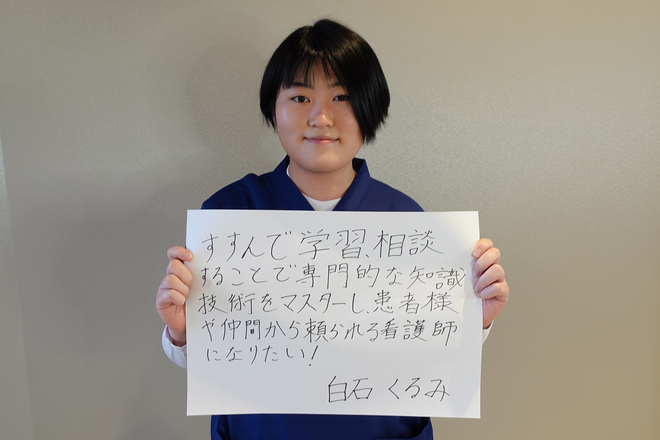 すすんで学習、相談
することで専門的な知識
技術をマスターし、患者様
や仲間から頼られる看護師
になりたい!
白石 くるみ